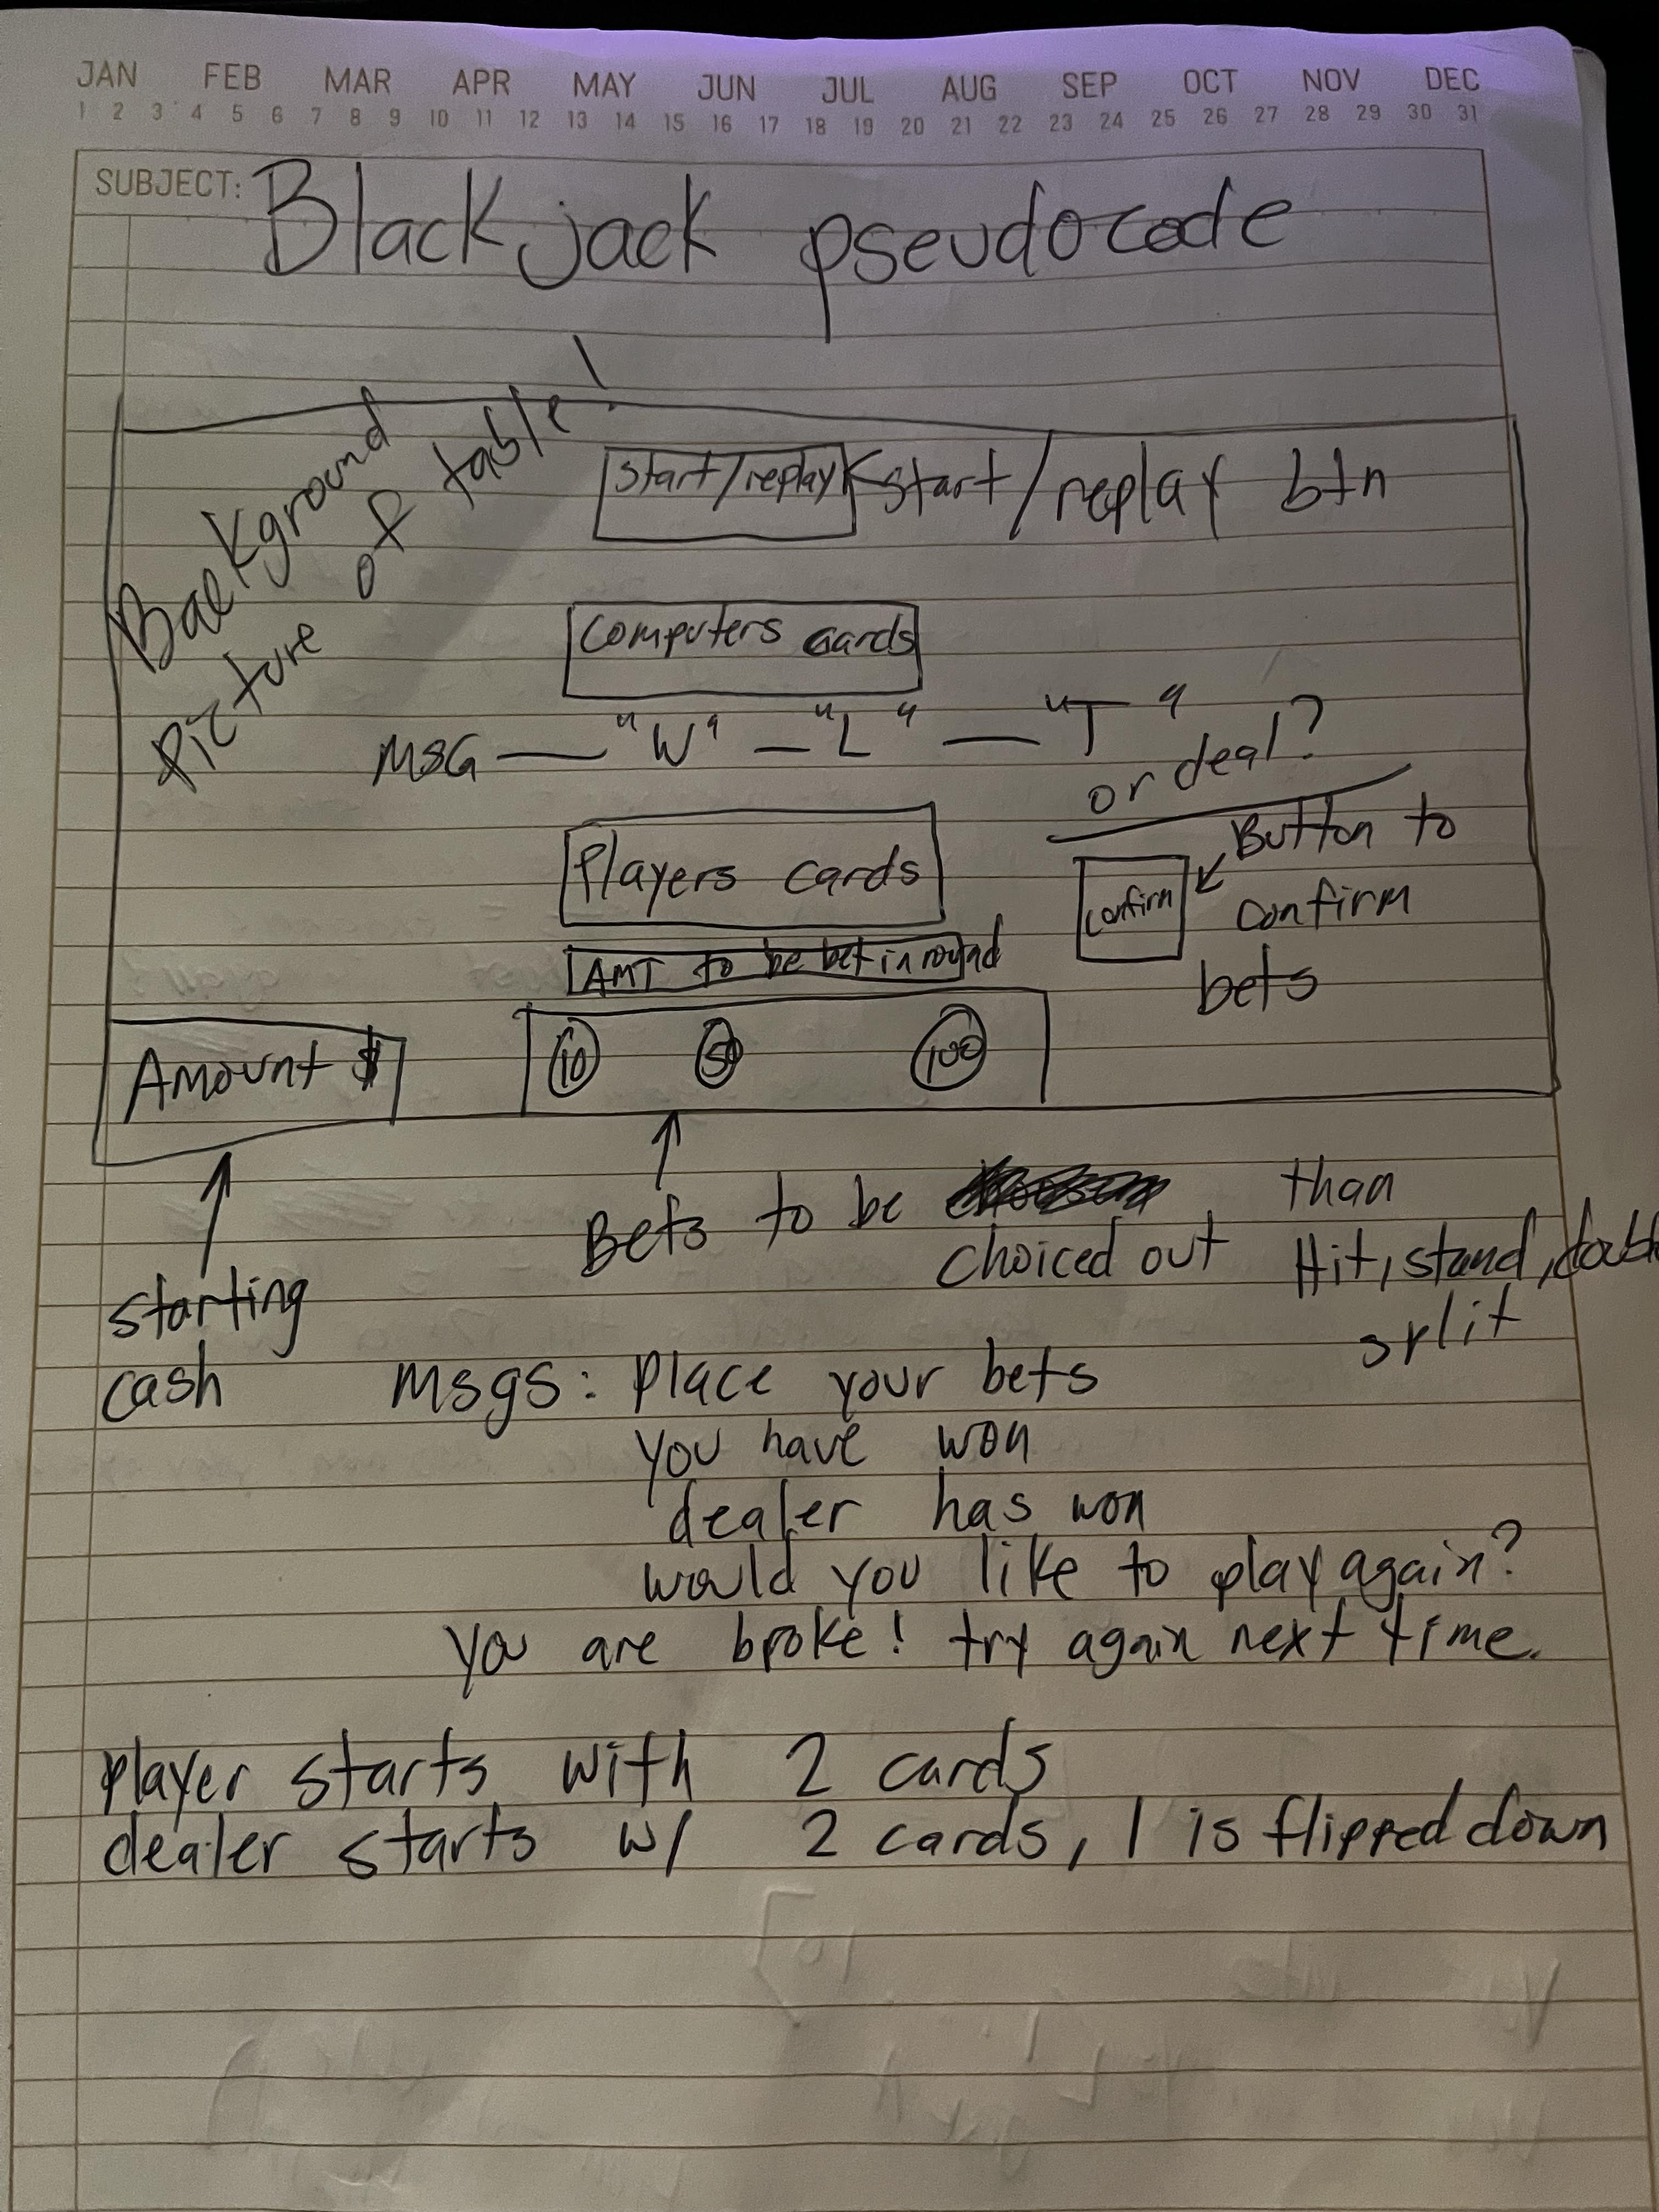 JAN FEB MAR APR MAY JUN JUL AUG SEP OCT NOV DEC
1 2 3 4 5 6 7 8 9 10 11 12 13 14 15 16 17 18 19 20 21 22 23 24 25 26 27 28 29 30 31
SUBJECT: Blackjack pseudocode
Background
Picture of table!
Start/replay
start/replay btn
Computers cards
MSG — "W" — "L" — "T"
or deal?
Players cards
confirm
Button to
confirm
bets
AMT to be bet in round
Amount $
10 50 100
starting
cash
Bets to be
choiced out
than
Hit, stand, double
split
Msgs: Place your bets
you have won
dealer has won
would you like to play again?
you are broke! try again next time.
player starts with 2 cards
dealer starts w/ 2 cards, 1 is flipped down